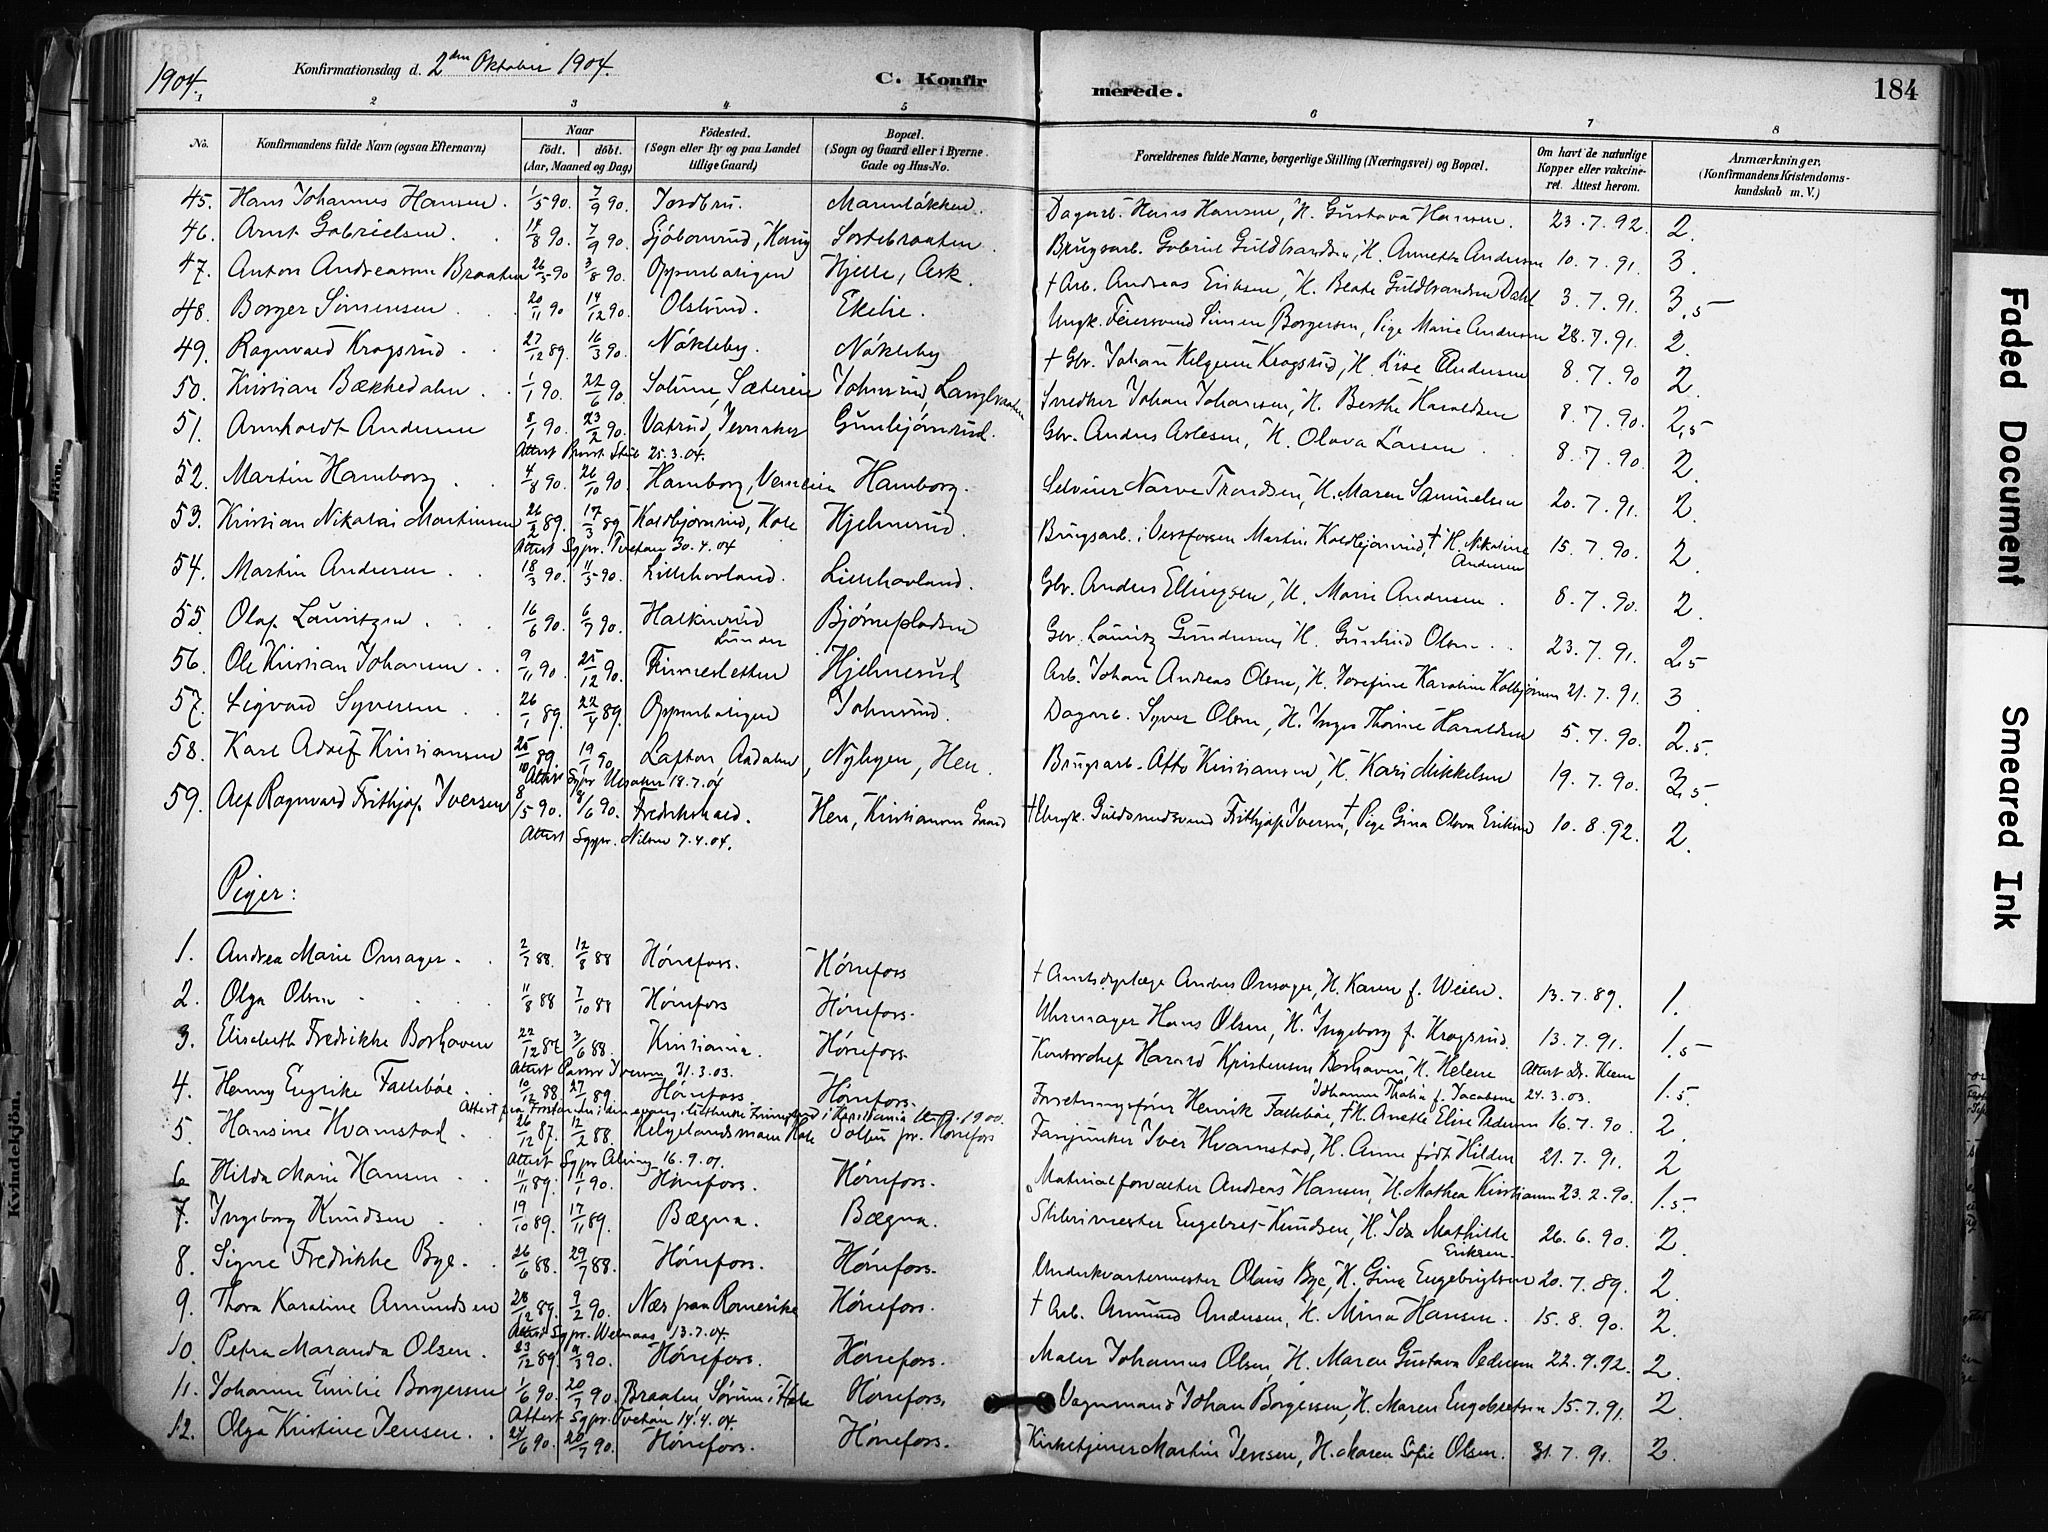 1904.
Konfirmationsdag d. 2den Oktober 1904.
C. Konfir
merede.
184
1 2 3 4 5 6 7 8
No. Konfirmandens fulde Navn (ogsaa Efternavn) Naar födt. döbt. (Aar, Maaned og Dag) Födested. (Sogn eller By og paa Landet tillige Gaard) Bopæl. (Sogn og Gaard eller i Byerne Gade og Hus-No. Forældrenes fulde Navne, borgerlige Stilling (Næringsvei) og Bopæl. Om havt de naturlige Kopper eller vakcineret. Attest herom. Anmærkninger. (Konfirmandens Kristendomskundskab m. V.)
45. Hans Johannes Hansen. 1/5 90. 7/9 90. Jordbru. Marenløkken. Dagarb. Hans Hansen, H. Gustava Hansen. 23.7.92. 2.
46. Arnt Gabrielsen. 14/8 90. 7/9 90. Sortebraaten. Brugsarb. Gabriel Guldbrandsen, H. Annette Andersen 10.7.91. 3.
47. Anton Andreassen Braaten 26/5 90 3/8 90. Oppenbatigen Hjelle, Ask. † Arb. Andreas Eriksen, H. Beate Guldbrandsen Dahl 3.7.91. 3,5
48. Borger Simensen 20/11 90 14/12 90. Olslund. Ekelie. Ungk. Feiersvend Simen Borgersen, Pige Marie Andersen 28.7.91. 2.
49. Ragnvald Krogsrud 27/12 89. 16/3 90. Nøkleby. Nøkleby † Gbr. Johan Helgesen Krogsrud, H. Lise Andersen 8.7.90 2.
50. Kristian Bækkedalen 1/1 90. 22/6 90. Solum, Sæteren Johnsrud, Langbraaten Snedker Johan Johansen, H. Berthe Haraldsen 8.7.90. 2,5
51. Arnholdt Andersen 8/1 90. 23/2 90. Vatsrud, Jevnaker Gunbjørnrud. Gbr. Anders Arlesen, H. Olava Larsen 8.7.90. 2.
Attest Provst Stub 25.3.04.
52. Martin Hamborg. 4/8 90. 26/10 90. Hamborg, Hamborg. Selveier Narve Trondsen, H. Maren Samuelsen 20.7.91. 2.
53. Kristian Nikolai Martinsen 26/2 89. 17/3 89. Koldbjørnrud, Hole Hjelmerud. Brugsarb. i Vestfossen Martin Koldbjørnrud, † H. Nikoline Andersen 15.7.90. 2.
Attest Sgpr. Tvetan 30.4.04
54. Martin Andersen 18/3 90. 11/5 90. Lillehovland. Lillehovland. Gbr. Anders Ellingsen, H. Marie Andersen 8.7.90. 2.
55. Olaf Lauritzen 16/6 90. 6/7 90. Halkinrud Lunder Bjørnepladsen Gbr. Lauritz Gundersen, H. Gunhild Olsen 23.7.91. 2,5
56. Ole Kristian Johansen 9/11 90. 25/12 90. Finnesletten Hjelmerud Arb. Johan Andreas Olsen, H. Josefine Karoline Kolbjørnsen 21.7.91. 3.
57. Sigvard Syversen 26/1 89. 22/4 89. Oppenbatigen Johnsrud. Dagarb. Syver Olsen, H. Inger Thorine Haraldsen 5.7.90. 2.5.
58. Karl Adolf Kristiansen 25/10 89. 19/1 90. Lafton, Aadalen, Nyhagen, Hen. Brugsarb. Otto Kristiansen, H. Kari Mikkelsen 19.7.90. 3.5.
Attest Sgpr 18.7.04
59. Alf Ragnvard Frithjof Iversen 8/5 90. 8/6 90. Fredrikshald. Hen, Kristiansen Gaard † Ungk. Guldsmedsvend Frithjof Iversen, † Pige Gina Olava Eriksen 10.8.92. 2.
Attest Sgpr. Nilsen 7.4.04.
Piger:
1. Andrea Marie Onsager. 2/7 88. 12/8 88 Hønefoss. Hønefoss † Amtsdyrlæge Anders Onsager, H. Karen f. Weien. 13.7.89. 1.
2. Olga Olsen 11/8 88 7/10 88 Hønefoss Hønefoss. Uhrmager Hans Olsen, H. Ingeborg f. Krogsrud. 13.7.91. 1.5
3. Elisabeth Fredrikke Borhaven 22/12 87 3/6 88. Kristiania. Hønefoss Kontorchef Harald Kristensen Borhaven, H. Helene Johanne Thalia f. Jacobsen Attest Dr. Klem 24.3.03. 1.5.
Attest Pastor Iversen 31.3.03.
4. Henny Engrike Fallebøe. 10/12 88 27/1 89. Hønefoss. Hønefoss. Forretningsfører Henrik Fallebøe, † H. Anette Elise Pedersen 16.7.90. 2.
Attest fra Forstanderen i den evang. lutherske Frimenighed i Kristiania 1900.
5. Hansine Kvamstad. 26/12 87. 12/2 88. Helgelandsmoen Hole Solbu pr. Hønefoss Fanejunker Iver Kvamstad, H. Anne født Hilden 21.7.91. 2
Attest Sgpr Alving 16.9.01.
6 Hilda Marie Hansen 11/11 89. 11/1 90. Hønefoss. Hønefoss. Materialforvalter Andreas Hansen, H. Mathea Kristiansen 23.2.90. 1.5.
7. Ingeborg Knudsen 19/10 89. 17/11 89. Bægna. Bægna. Sliberimester Engebret Knudsen, H. Ida Mathilde Eriksen. 26.6.90. 2.
8. Signe Fredrikke Bye. 26/6 88. 29/7 88. Hønefoss. Hønefoss. Underkvartermester Olaus Bye, H. Gine Engebrigtsen 20.7.89. 2.
9. Thora Karoline Amundsen 28/12 89. 9/2 90. Nes paa Romerike Hønefoss. † Arb. Amund Andersen, H. Mina Hansen. 15.8.90. 2.
Attest Sgpr. 13.7.04.
10. Petra Maranda Olsen. 23/12 89. 9/3 90. Hønefoss. Hønefoss. Maler Johannes Olsen, H. Maren Gustava Pedersen 22.9.92. 2.
11. Johanne Emilie Borgersen 1/6 90. 20/7 90. Braaten Sørum i Hole Hønefoss. Vognmand Johan Borgersen, H. Maren Engebretsen 15.7.91. 2.
Attest Sgpr. Tvetan 14.4.04.
12. Olga Kristine Jensen. 24/6 90. 20/7 90. Hønefoss. Hønefoss. Kirketjener Martin Jensen, H. Maren Sofie Olsen. 31.7.91. 2.
Faded Document
Smeared Ink
Kvindekjön.